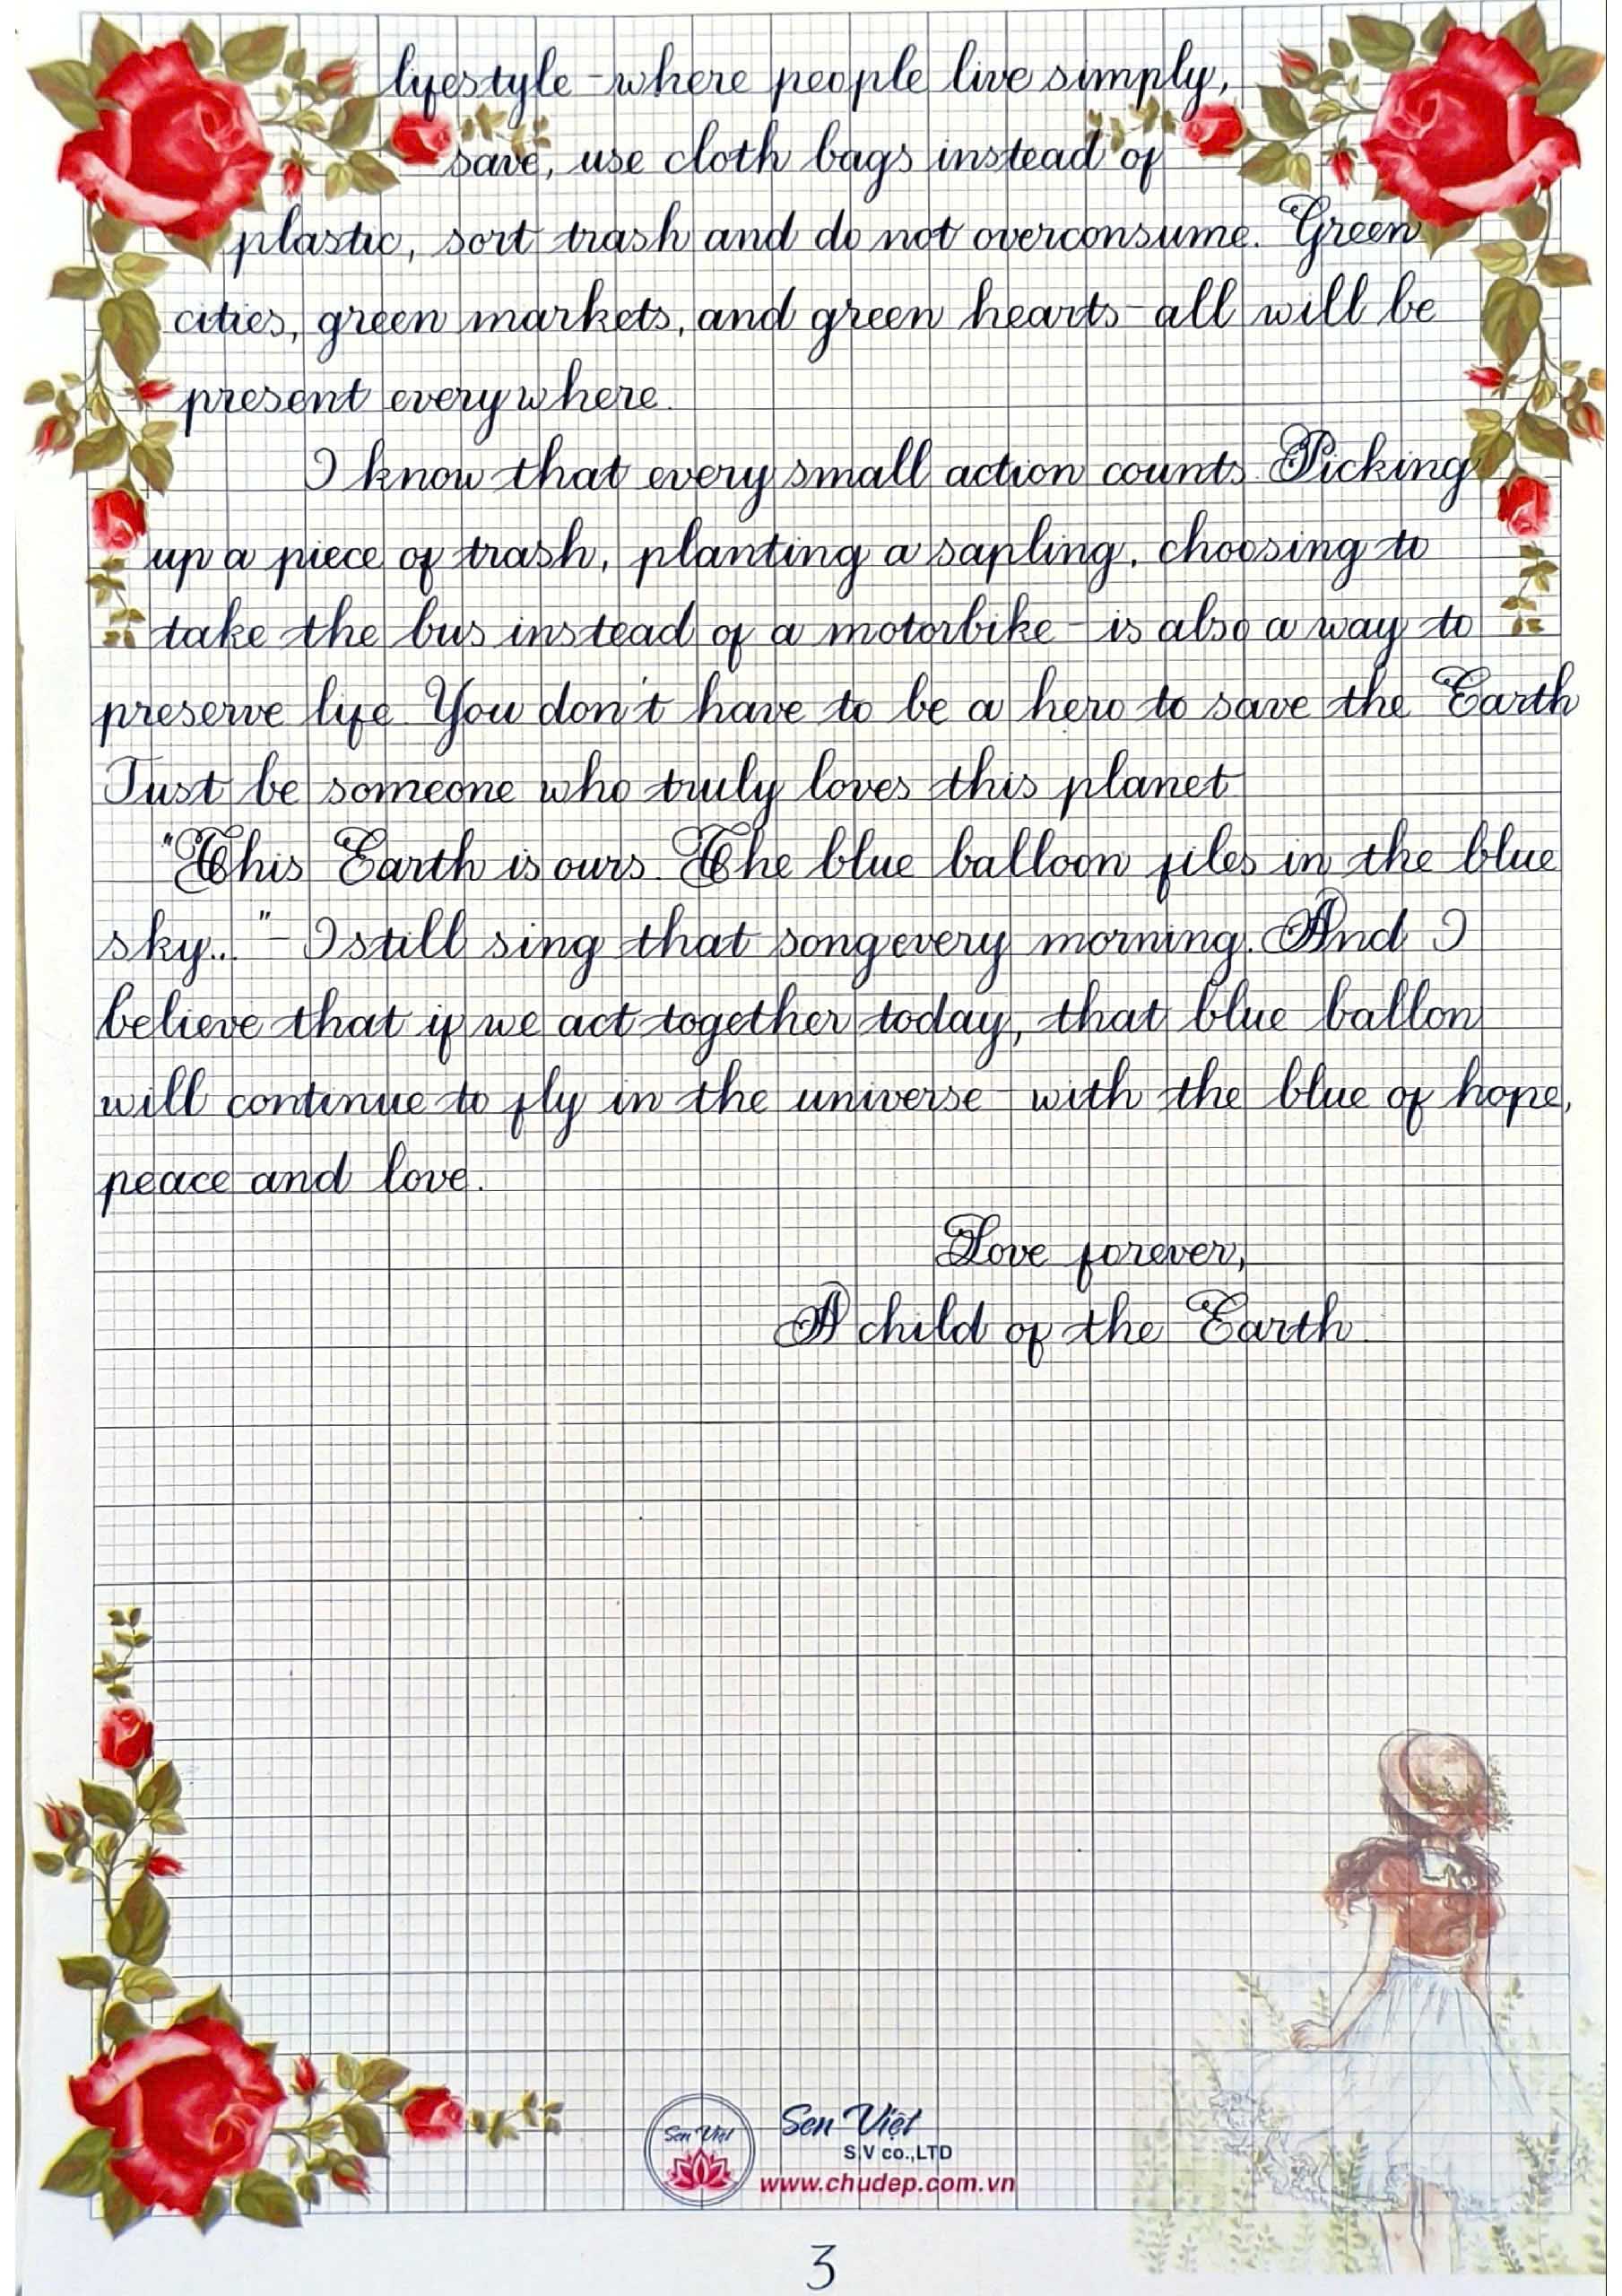 lifestyle - where people live simply,
save, use cloth bags instead of
plastic, sort trash and do not overconsume. Green
cities, green markets, and green hearts - all will be
present everywhere.
I know that every small action counts. Picking
up a piece of trash, planting a sapling, choosing to
take the bus instead of a motorbike - is also a way to
preserve life. You don't have to be a hero to save the Earth
Just be someone who truly loves this planet
"This Earth is ours. The blue balloon files in the blue
sky..." - I still sing that song every morning. And I
believe that if we act together today, that blue ballon
will continue to fly in the universe - with the blue of hope,
peace and love.
Love forever,
A child of the Earth.
Sen Việt
Sen Việt
S.V co.,LTD
www.chudep.com.vn
3